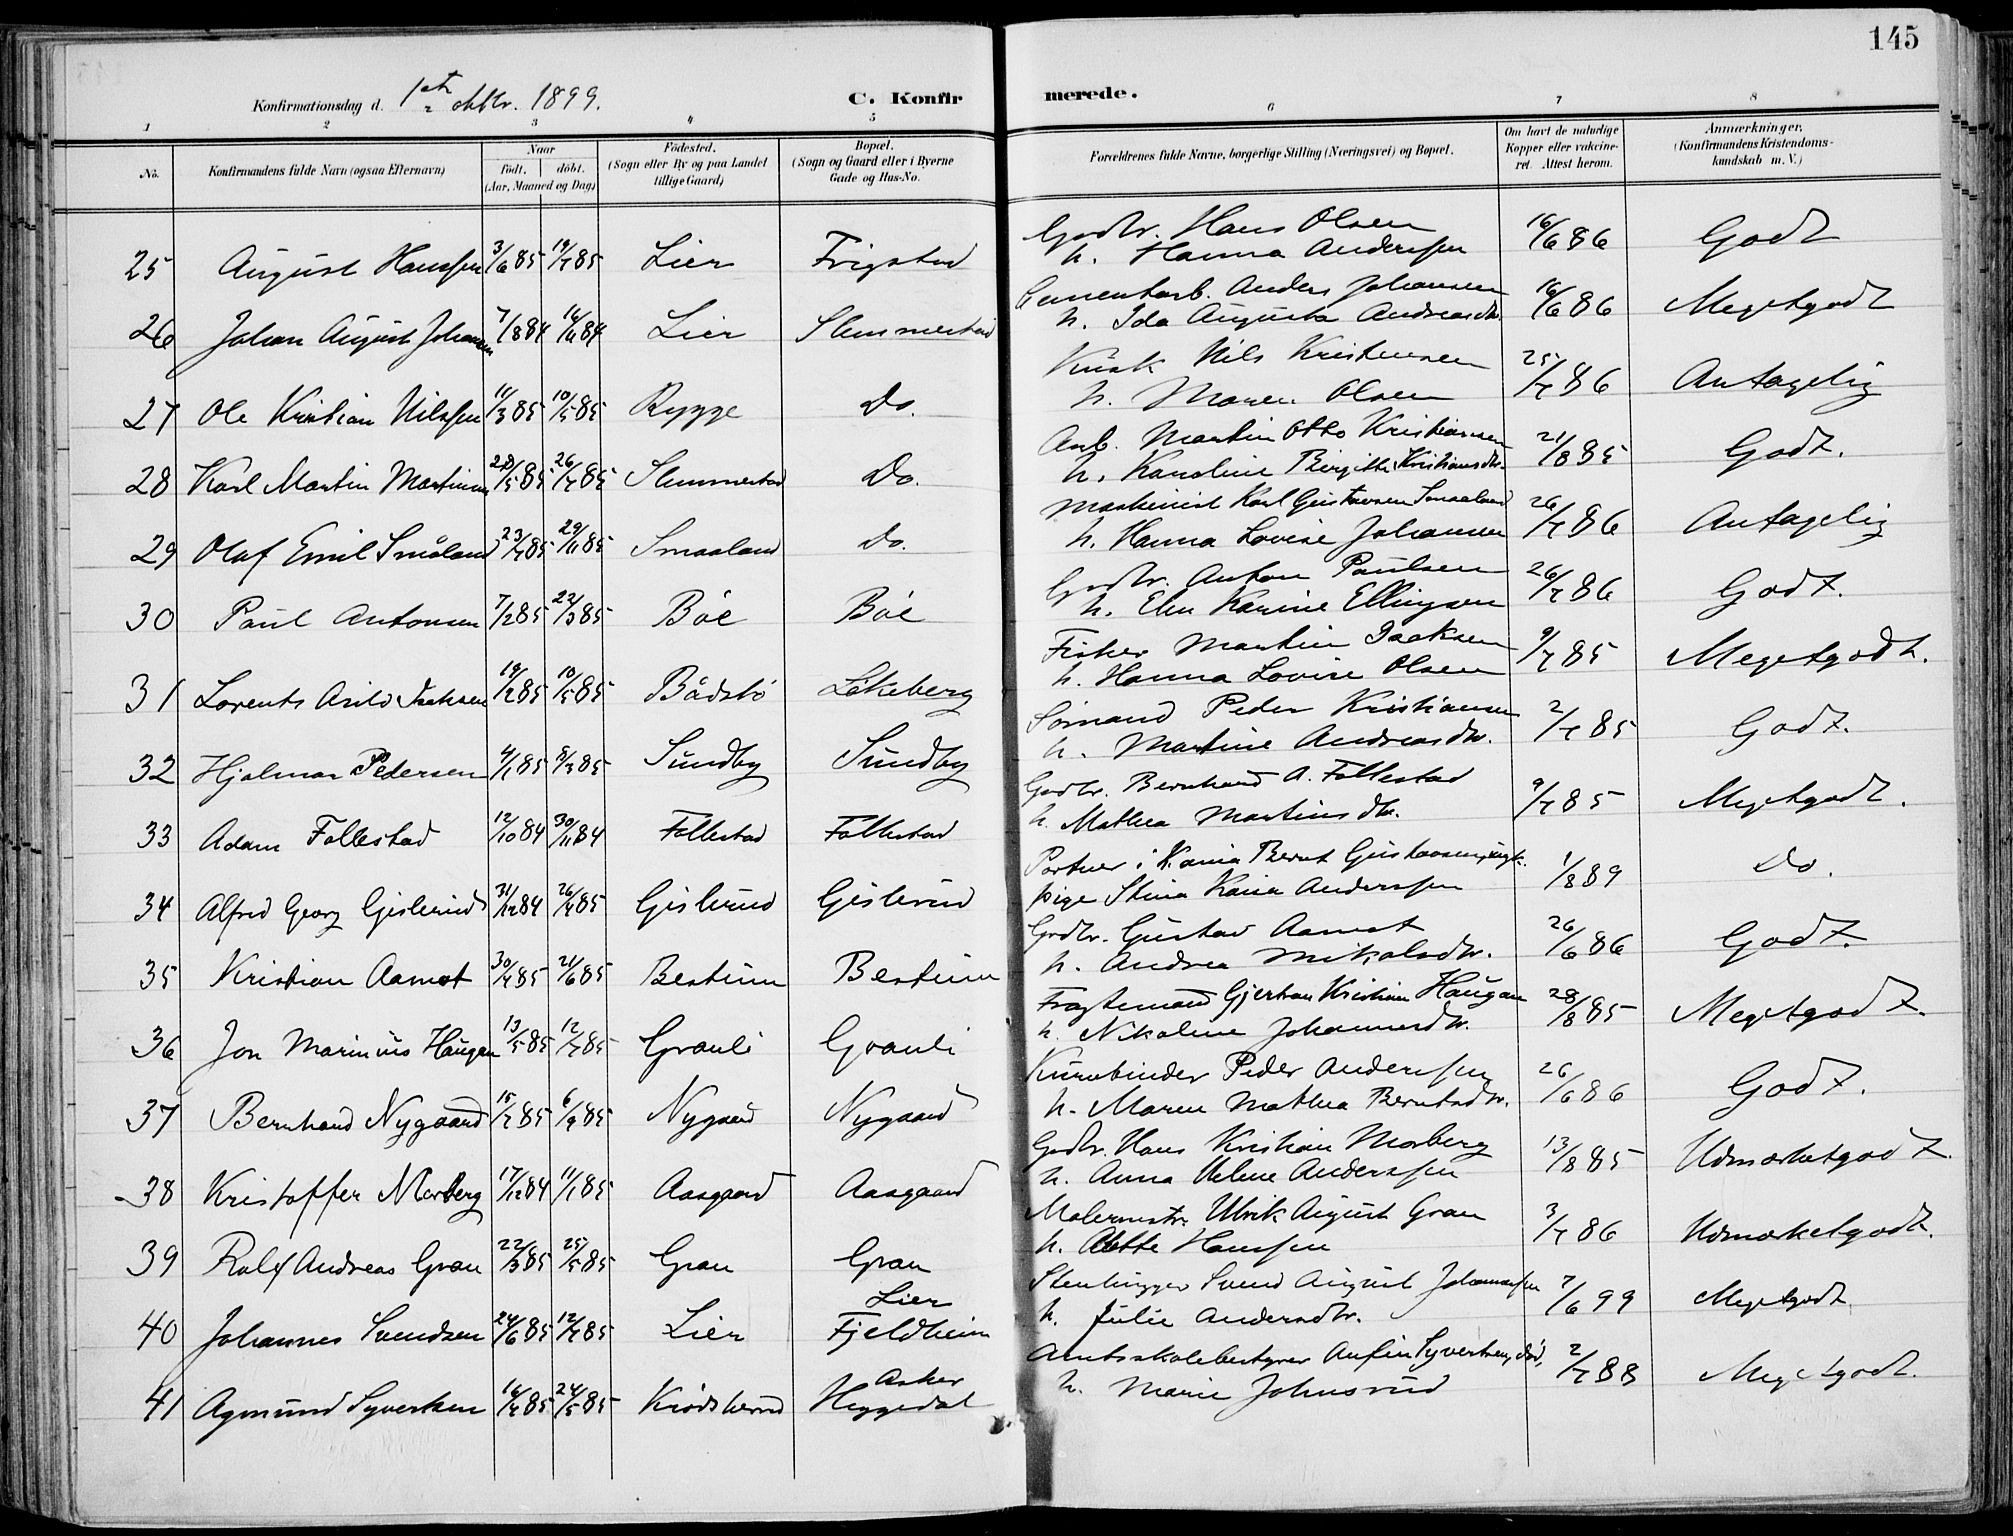 145
Konfirmationsdag d. 1ste oktbr. 1899.
C. Konfirmerede.
1 2 3 4 5 6 7 8
No.
Konfirmandens fulde Navn (ogsaa Efternavn)
Naar
født. døbt.
(Aar, Maaned og Dag)
Fødested.
(Sogn eller By og paa Landet
tillige Gaard)
Bopæl.
(Sogn og Gaard eller i Byerne
Gade og Hus-No.
Forældrenes fulde Navne, borgerlige Stilling (Næringsvei) og Bopæl.
Om havt de naturlige
Kopper eller vakcine-
ret. Attest herom.
Anmærkninger.
(Konfirmandens Kristendoms-
kundskab m. V.)
25 August Hanssen 3/6 85 19/7 85 Lier Frigstad Gadbr. Hans Olsen 16/6 86 Godt
h. Hanna Anderssen
26 Johan August Johansen 7/8 84 84 Lier Slemmestad Cementarb. Anders Johansen 16/6 86 Megetgodt
h. Ida Augusta Andreasdtr.
27 Ole Kristian Nilssen 11/3 85 10/5 85 Rygge Do. Kusk Nils Kristensen 25/7 86 Antagelig
h. Maren Olsen
28 Karl Martin Martinsen 28/5 85 26/7 85 Slemmestad Do. Arb. Martin Otto Kristiansen 21/8 85 Godt.
h. Karoline Birgitte Kristiansdtr.
29 Olaf Emil Småland 23/7 85 29/11 85 Smaaland Do. Maskinist Karl Gustavsen Smaaland 26/7 86 Antagelig
h. Hanna Lovise Johansen
30 Paul Antonsen 7/2 85 22/3 85 Böe Böe Gadbr. Anton Paulsen 26/7 86 Godt.
h. Elen Karine Ellingsen
31 Lorents Arild Isaksen 19/2 85 10/5 85 Bådstö Lökeberg Fisker Martin Isaksen 9/7 85 Megetgodt.
h. Hanna Lovise Olsen
32 Hjalmar Pedersen 4/1 85 8/3 85 Sundby Sundby Sömand Peder Kristiansen 2/7 85 Godt.
h. Martine Andreasdtr.
33 Adam Follestad 12/10 84 30/11 84 Follestad Follestad Gadbr. Bernhard A. Follestad 9/7 85 Megetgodt.
h. Mathea Martinsdtr.
34 Alfred Georg Gislerud 31/12 84 26/4 85 Gislerud Gislerud Portner i K.ania Bernt Gustavsen, ugk. 1/8 89 Do.
pige Stina Kaia Anderssen
35 Kristian Aamot 30/4 85 21/6 85 Bestum Bestum Grdbr. Gustav Aamot 26/6 86 Godt.
h. Andrea Nikolsdtr.
36 Jon Marinius Haugen 13/5 85 12/7 85 Granli Granli Fragtemand Gjertsen Kristian Haugen 28/8 85 Megetgodt.
h. Nikoline Johannesdtr.
37 Bernhard Nygaard 15/7 85 6/9 85 Nygaard Nygaard Kurvebinder Peder Anderssen 26/6 86 Godt.
h. Maren Mathea Berntsdtr.
38 Kristoffer Morberg 17/12 84 11/1 85 Aasgaard Aasgaard Gadbr. Hans Kristian Morberg 13/8 85 Udmærketgodt.
h. Anna Helene Anderssen
39 Ralf Andreas Gran 22/3 85 25/5 85 Gran Gran Malermstr. Ulrik August Gran 3/7 86 Udmærketgodt.
h. Alette Hanssen
40 Johannes Svendsen 24/6 85 12/7 85 Lier Lier Fjeldheim Stenhugger Svend August Johannessen 7/6 99 Megetgodt
h. Julie Andersdtr.
41 Agmund Syvertsen 16/4 85 24/5 85 Krödsherred Asker Heggedal Amtsskolebestyrer Anfin Syvertsen, död, 2/7 88 Megetgodt.
h. Marie Johnsrud